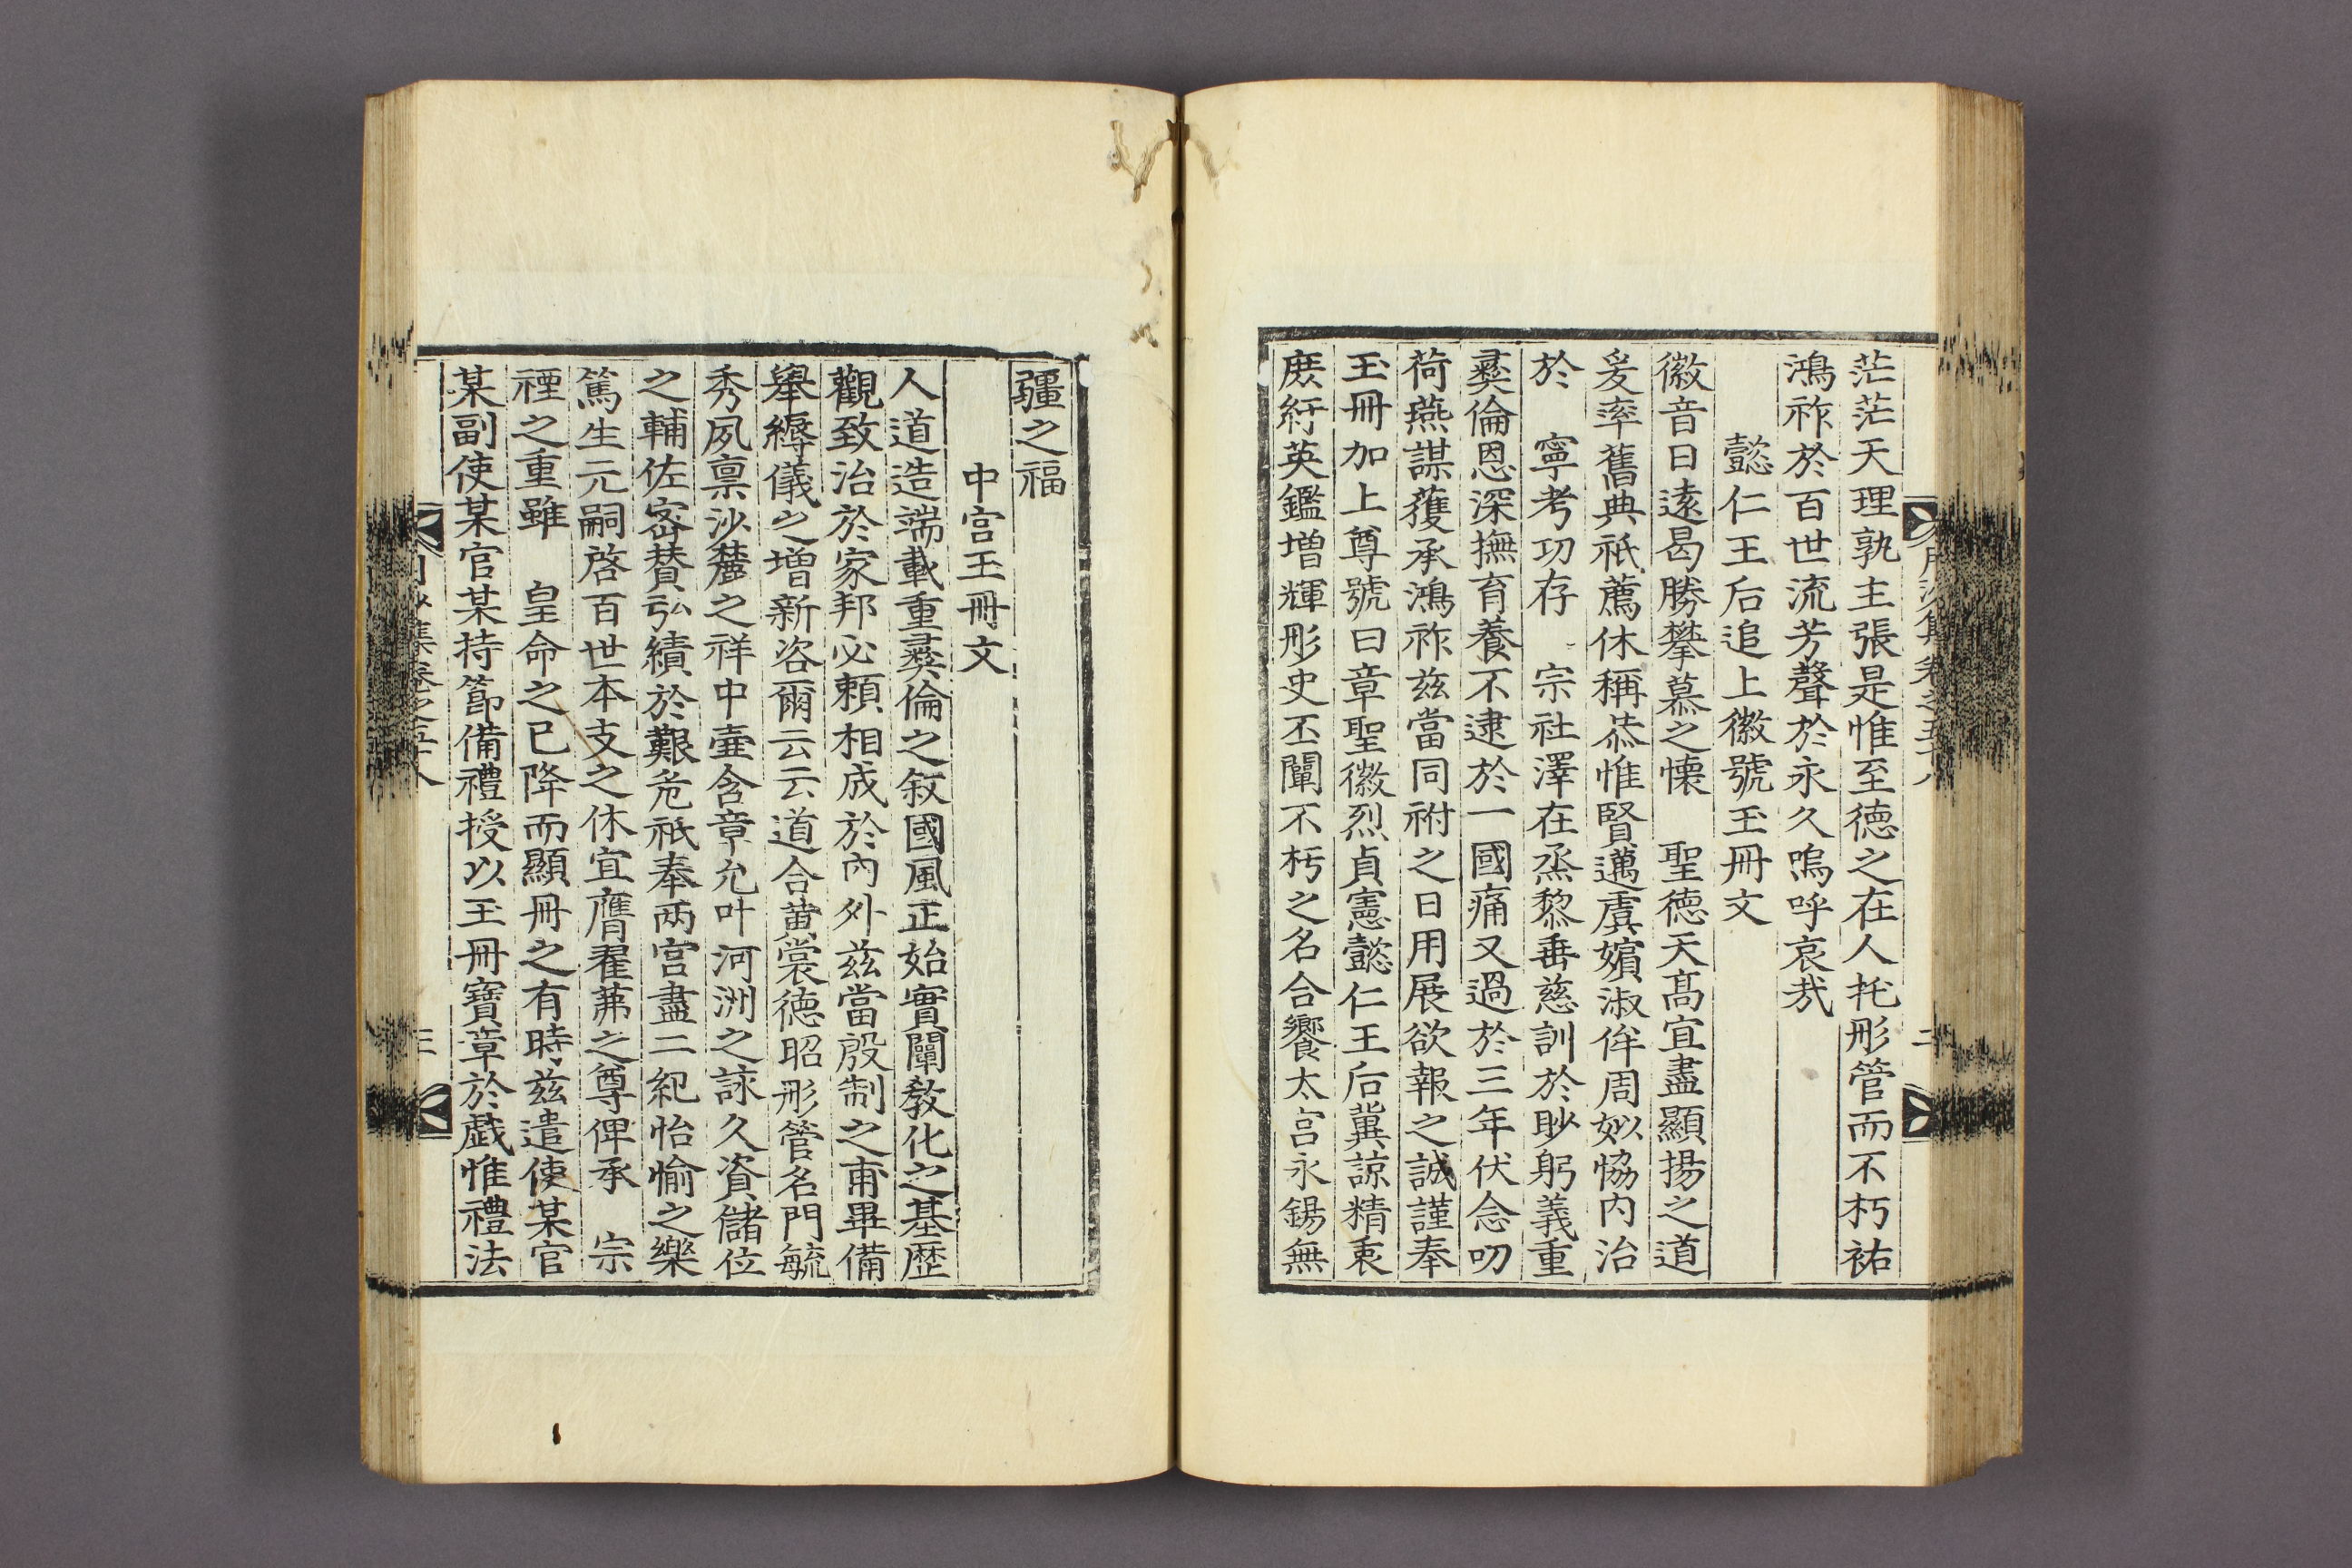 茫茫天理孰主張是惟至德之在人托彤管而不朽祐
鴻祚於百世流芳聲於永久嗚呼哀哉
懿仁王后追上徽號玉冊文
徽音日遠曷勝攀慕之懷 聖德天高宜盡顯揚之道
爰率舊典祇薦休稱恭惟賢邁虞嬪淑侔周姒恊内治
於 寧考功存 宗社澤在烝黎垂慈訓於眇躬義重
彛倫恩深撫育養不逮於一國痛又過於三年伏念叨
荷燕謀獲承鴻祚玆當同祔之日用展欲報之誠謹奉
玉冊加上尊號曰章聖徽烈貞憲懿仁王后冀諒精衷
庶紆英鑑增輝彤史丕闡不朽之名合饗太宮永錫無
疆之福
中宮玉冊文
人道造端載重彛倫之叙國風正始實闡敎化之基歷
觀致治於家邦必賴相成於內外玆當殷制之甫畢備
擧縟儀之增新咨爾云云道合黃裳德昭彤管名門毓
秀夙禀沙麓之祥中壼含章允叶河洲之詠久資儲位
之輔佐密贊弘績於艱危祇奉兩宮盡二紀怡愉之樂
篤生元嗣啓百世本支之休宜膺翟茀之尊俾承 宗
禋之重雖 皇命之已降而顯冊之有時玆遣使某官
某副使某官某持節備禮授以玉冊寶章於戲惟禮法
集卷之五十八
三